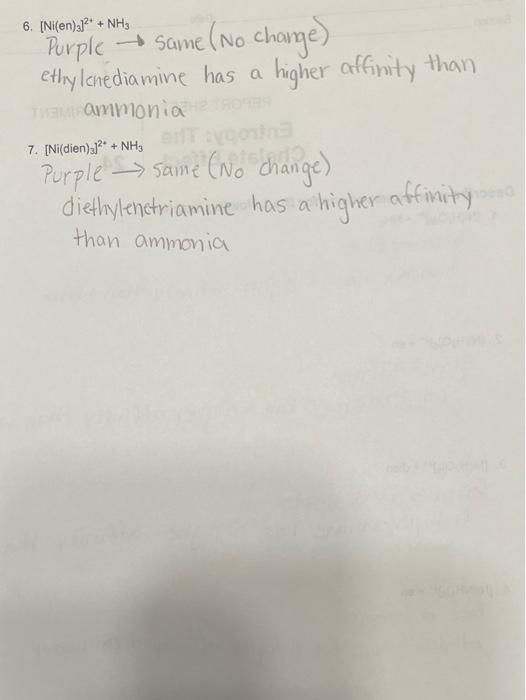 6. [Ni(en)₃]²⁺ + NH₃
Purple → same (No change)
ethylenediamine has a higher affinity than
ammonia
7. [Ni(dien)₃]²⁺ + NH₃
Purple → same (No change)
diethylenetriamine has a higher affinity
than ammonia